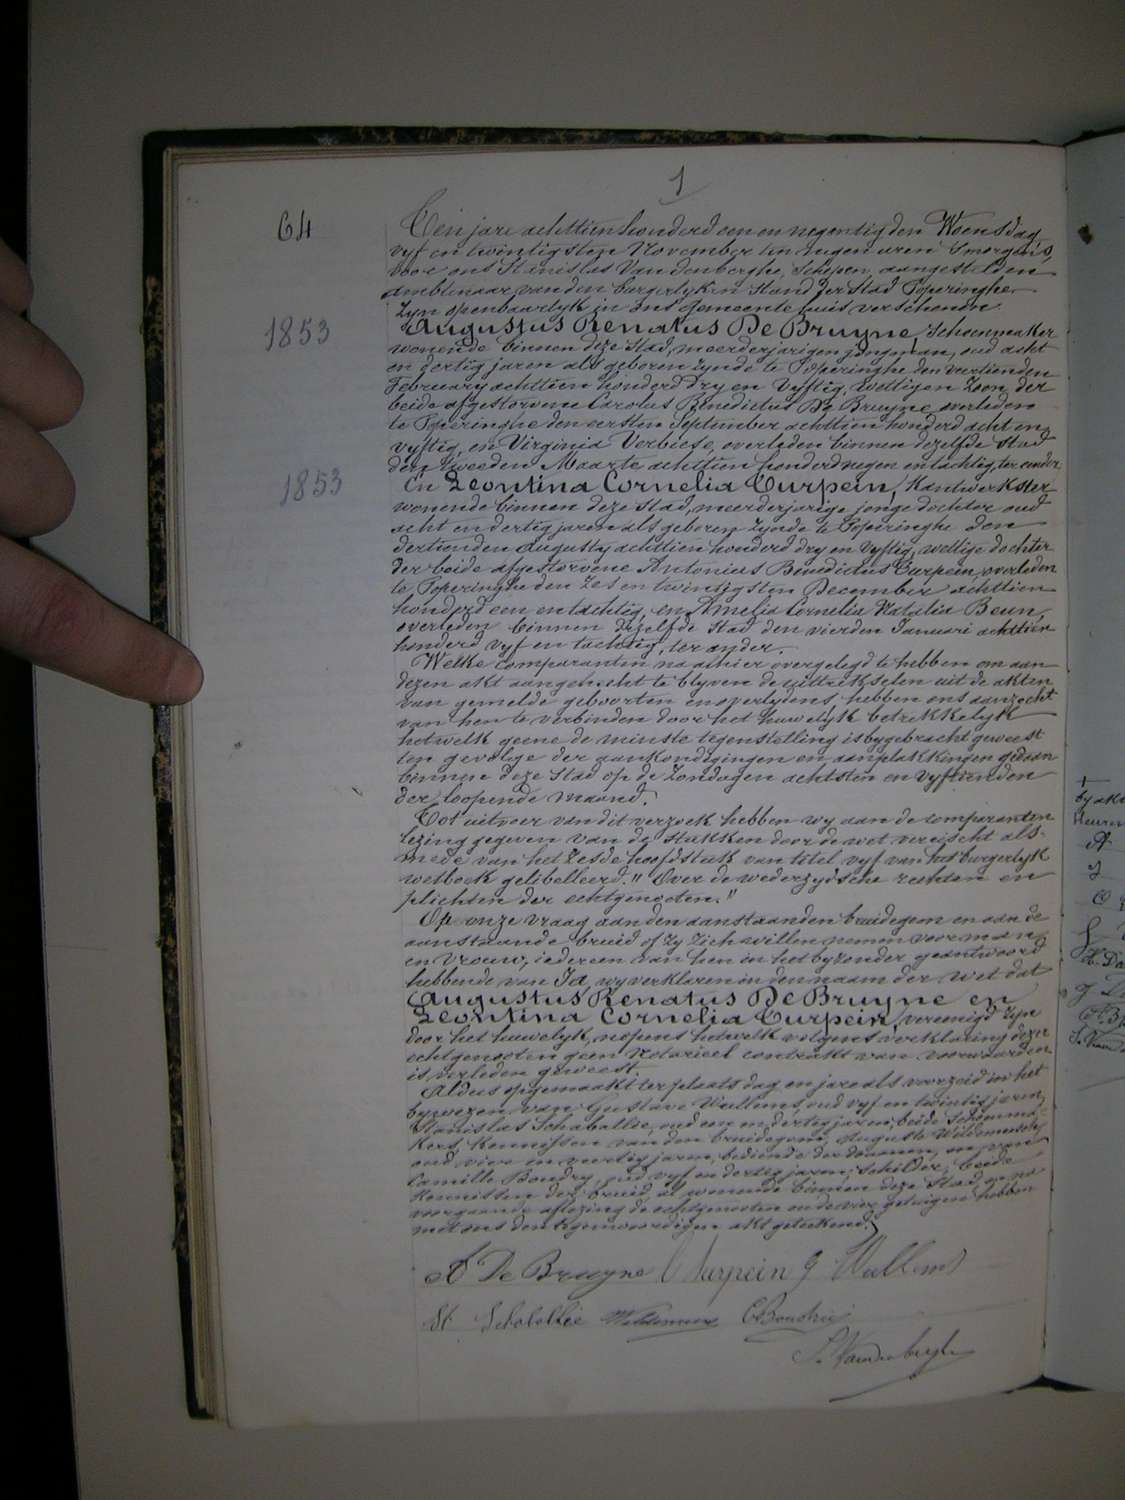 1
64
Ten jare achttien honderd een en negentig den Woensdag
vyf en twintigsten November ten negen uren 's morgens,
voor ons Stanislas Vandenberghe, Schepen, aangestelden
ambtenaar van den burgerlyken Stand der Stad Poperinghe
zyn openbaarlyk in ons Gemeentehuis verschenen
1853
Augustus Renatus De Bruyne, Schoenmaker
wonende binnen deze Stad, meerderjarigen jongman, oud acht
en dertig jaren als geboren zynde te Poperinghe den veertienden
February achttien honderd dry en vyftig, wettigen zoon der
beide afgestorvene Carolus Benedictus De Bruyne overleden
te Poperinghe den eersten September achttien honderd acht en
vyftig, en Virginia Verbiese, overleden binnen dezelfde stad
den tweeden Maarte achttien honderd negen en tachtig, ter eender
1853
En Leontina Cornelia Turpein, Kantwerkster
wonende binnen deze Stad, meerderjarige jonge dochter oud
acht en dertig jaren als geboren zynde te Poperinghe den
dertienden augusty achttien honderd dry en vyftig, wettige dochter
der beide afgestorvene Antonius Benedictus Turpein, overleden
te Poperinghe den zes en twintigsten December achttien
honderd een en tachtig, en Amelia Cornelia Natalia Beun,
overleden binnen dezelfde stad den vierden Januari achttien
honderd vyf en tachtig, ter ander.
Welke comparanten na alhier overgelegd te hebben om aan
dezen akt aangehecht te blyven de uittreksels uit de akten
van gemelde geboorten en overlydens hebben ons aanzocht
van hen te verbinden door het huwelyk betrekkelyk
hetwelk geene de minste tegenstelling is bygebracht geweest
ten gevolge der aankondigingen en aanplakkingen gedaan
binnen deze Stad op de Zondagen achtsten en vyftienden
der loopende maand.
Tot uitvoer van dit verzoek hebben wy aan de comparanten
lezing gegeven van de stukken door de wet vereischt als-
mede van het zesde hoofdstuk van titel vyf van het burgerlyk
wetboek gelibelleerd. " Over de wederzydsche rechten en
plichten der echtgenooten."
Op onze vraag aan den aanstaanden bruidegom en aan de
aanstaande bruid of zy zich willen nemen voor man
en vrouw, iedereen van hen in het byzonder geantwoord
hebbende van Ja, wy verklaren in den naam der wet dat
Augustus Renatus De Bruyne en
Leontina Cornelia Turpein, vereenigd zyn
door het huwelyk, nopens hetwelk volgens verklaring dezer
echtgenooten geen notarieel contrakt van voorwaarden
is verleden geweest.
Aldus opgemaakt ter plaats dag en jare als voorzeid in het
bywezen van Gustave Wullems, oud vyf en twintig jaren,
Stanislas Schabaillie, oud een en dertig jaren, beide Schoenma-
kers, kennissen van den bruidegom, Auguste
oud vier en veertig jaren, bediende der douanen, en van
Camille Boudry, oud vyf en dertig jaren, Schilder, beide
kennissen der bruid, al wonende binnen deze Stad, en na
voorgaande aflezing de echtgenooten en de vier getuigen hebben
met ons den tegenwoordigen akt geteekend.
A De Bruyne Turpein G Wullems
St C Boudry
S. Vandenberghe